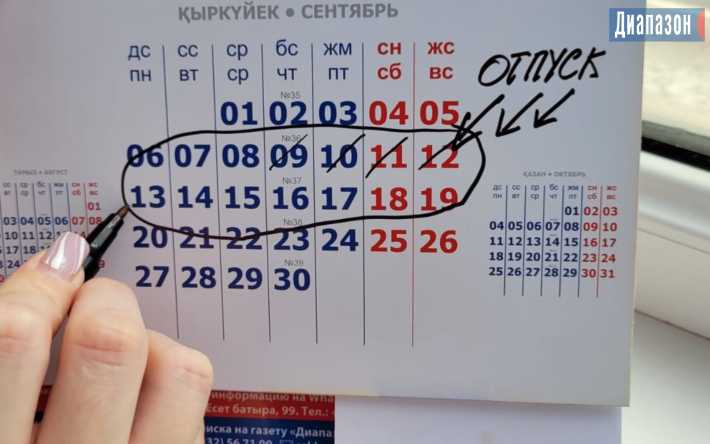 Диапазон
ҚЫРКҮЙЕК • СЕНТЯБРЬ
ДС СС СР БС ЖМ СН ЖС
ПН ВТ СР ЧТ ПТ СБ ВС
ОТПУСК
№35
01 02 03 04 05
№36
06 07 08 09 10 11 12
№37
13 14 15 16 17 18 19
№38
20 21 22 23 24 25 26
№39
27 28 29 30
ТАМЫЗ • АВГУСТ
СС СР БС ЖМ СН ЖС
ВТ СР ЧТ ПТ СБ ВС
01
03 04 05 06 07 08
10 11 12
17 18
24
ҚАЗАН • ОКТЯБРЬ
ДС СС СР БС ЖМ СН ЖС
ПН ВТ СР ЧТ ПТ СБ ВС
01 02 03
04 05 06 07 08 09 10
11 12 13 14 15 16 17
18 19 20 21 22 23 24
25 26 27 28 29 30 31
информацию на Wha
Есет батыра, 99. Тел.:
иска на газету «Диапа
32) 56 71 09